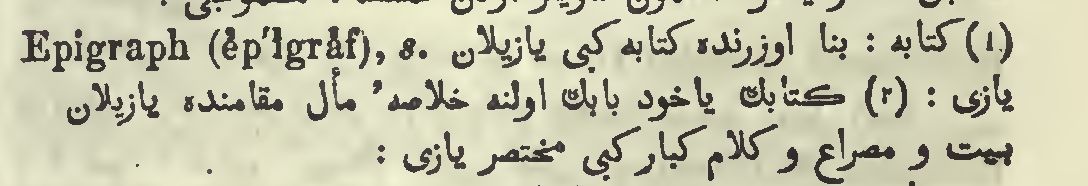 Epigraph (ĕp′ĭgrăf), s. (۱) كتابه : بنا اوزرنده كتابه كبی یازیلان
یازی : (۲) كتابك یاخود بابك اولنه خلاصهٔ مأل مقامنده یازیلان
بیت و مصراع و كلام كبار كبی مختصر یازی :